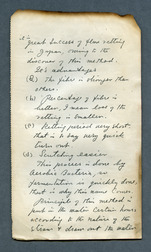 it is
great success of flax retting
in Japan, owing to the
discover of this method.
Its advantages
(a) The fibre is stronger than
others.
(b) Percentage of fibre is
better, I mean loss of the
retting is smaller.
(c) Retting period very short
that is to say very quick
turn out.
(d) Scutching easier
This process is done by
Aerobic Bacteria, so
fermentation is quickly done,
that is why this name
Principal of this method is
put in the water certain hours
according to the nature of the
straw & draw out the water